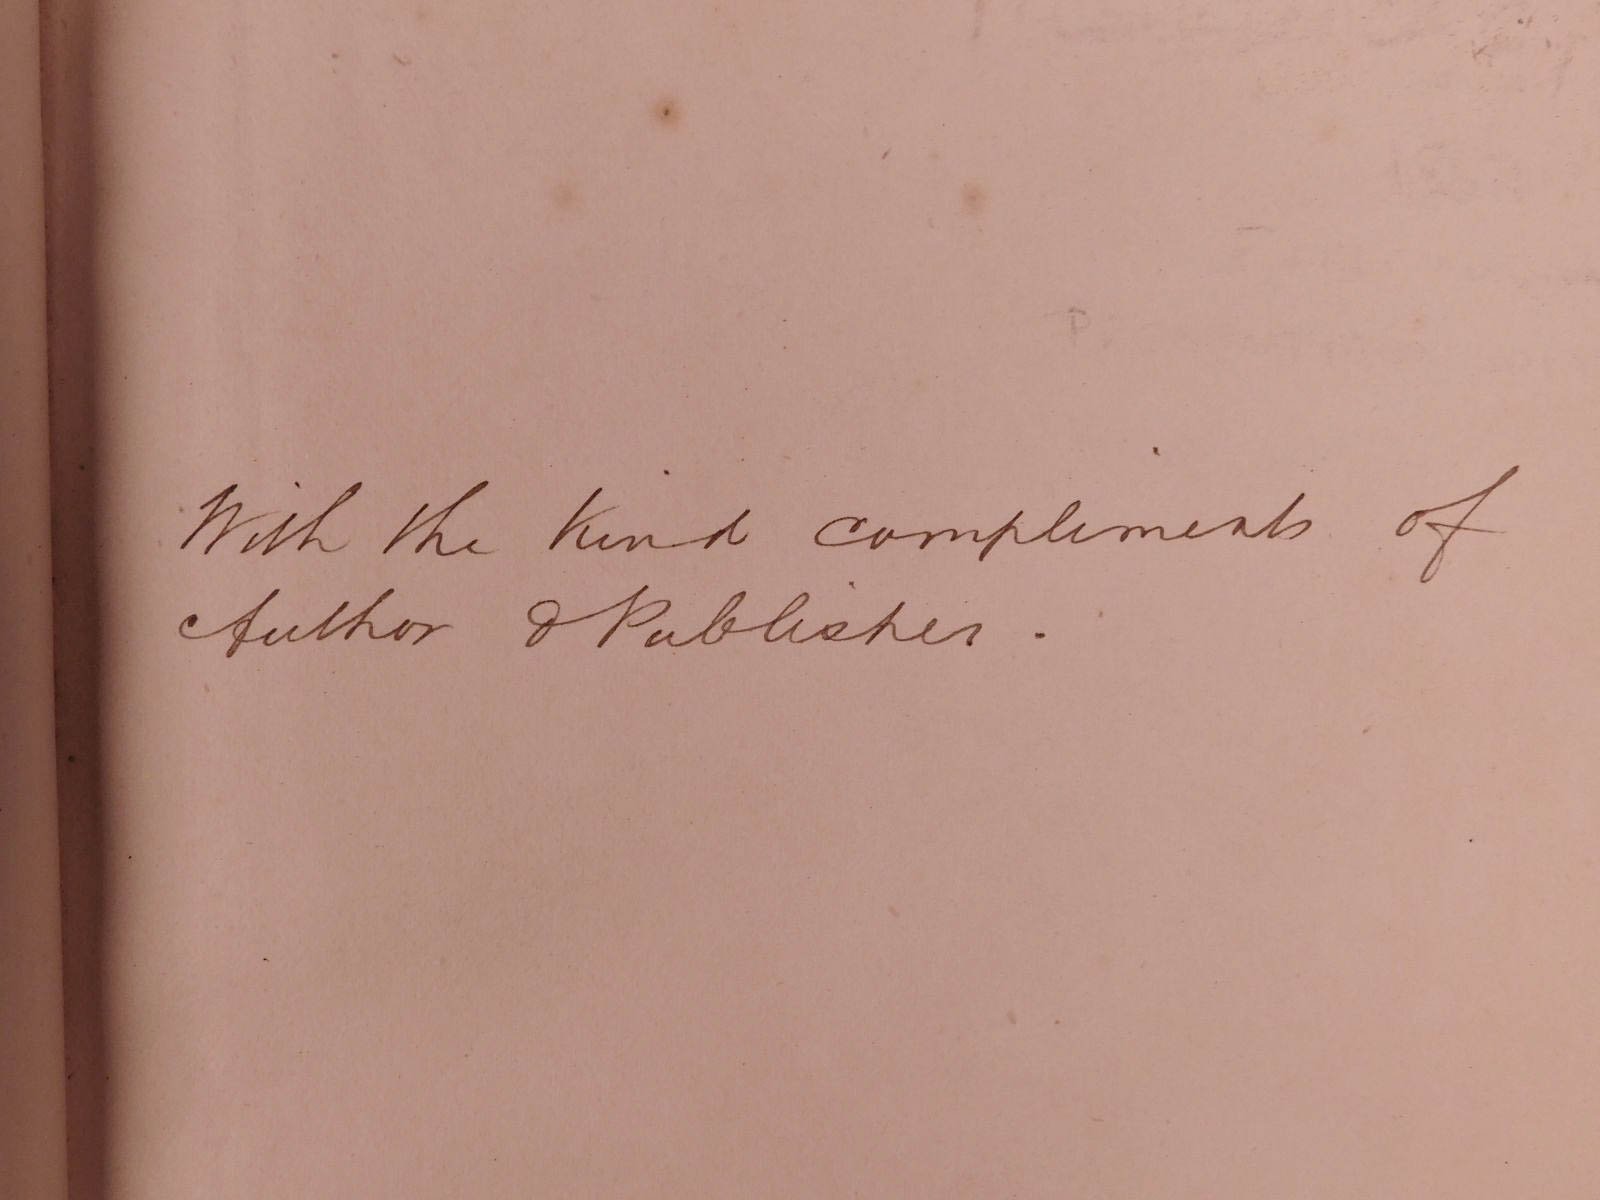 With the kind compliments of
Author & Publisher.